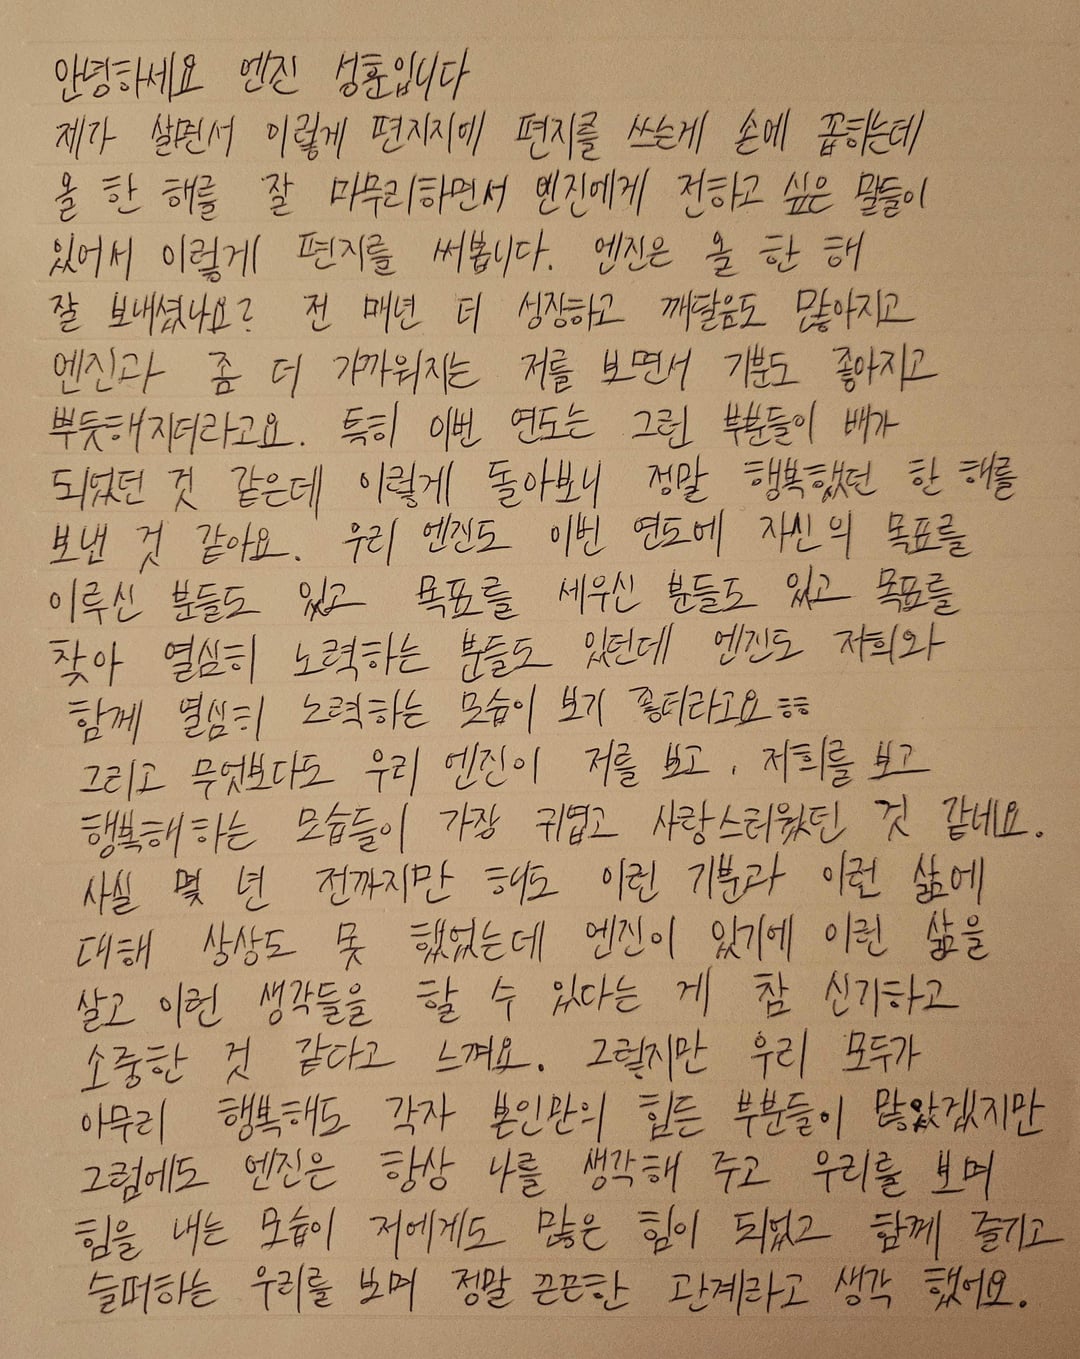 안녕하세요 엔진 성훈입니다
제가 살면서 이렇게 편지지에 편지를 쓰는게 손에 꼽히는데
올 한 해를 잘 마무리하면서 엔진에게 전하고 싶은 말들이
있어서 이렇게 편지를 써봅니다. 엔진은 올 한 해
잘 보내셨나요? 전 매년 더 성장하고 깨달음도 많아지고
엔진과 좀 더 가까워지는 저를 보면서 기분도 좋아지고
뿌듯해지더라고요. 특히 이번 연도는 그런 부분들이 배가
되었던 것 같은데 이렇게 돌아보니 정말 행복했던 한 해를
보낸 것 같아요. 우리 엔진도 이번 연도에 자신의 목표를
이루신 분들도 있고 목표를 세우신 분들도 있고 목표를
찾아 열심히 노력하는 분들도 있던데 엔진도 저희와
함께 열심히 노력하는 모습이 보기 좋더라고요ㅎㅎ
그리고 무엇보다도 우리 엔진이 저를 보고, 저희를 보고
행복해하는 모습들이 가장 귀엽고 사랑스러웠던 것 같네요.
사실 몇 년 전까지만 해도 이런 기분과 이런 삶에
대해 상상도 못 했었는데 엔진이 있기에 이런 삶을
살고 이런 생각들을 할 수 있다는 게 참 신기하고
소중한 것 같다고 느껴요. 그렇지만 우리 모두가
아무리 행복해도 각자 본인만의 힘든 부분들이 많았겠지만
그럼에도 엔진은 항상 나를 생각해 주고 우리를 보며
힘을 내는 모습이 저에게도 많은 힘이 되었고 함께 즐기고
슬퍼하는 우리를 보며 정말 끈끈한 관계라고 생각 했어요.